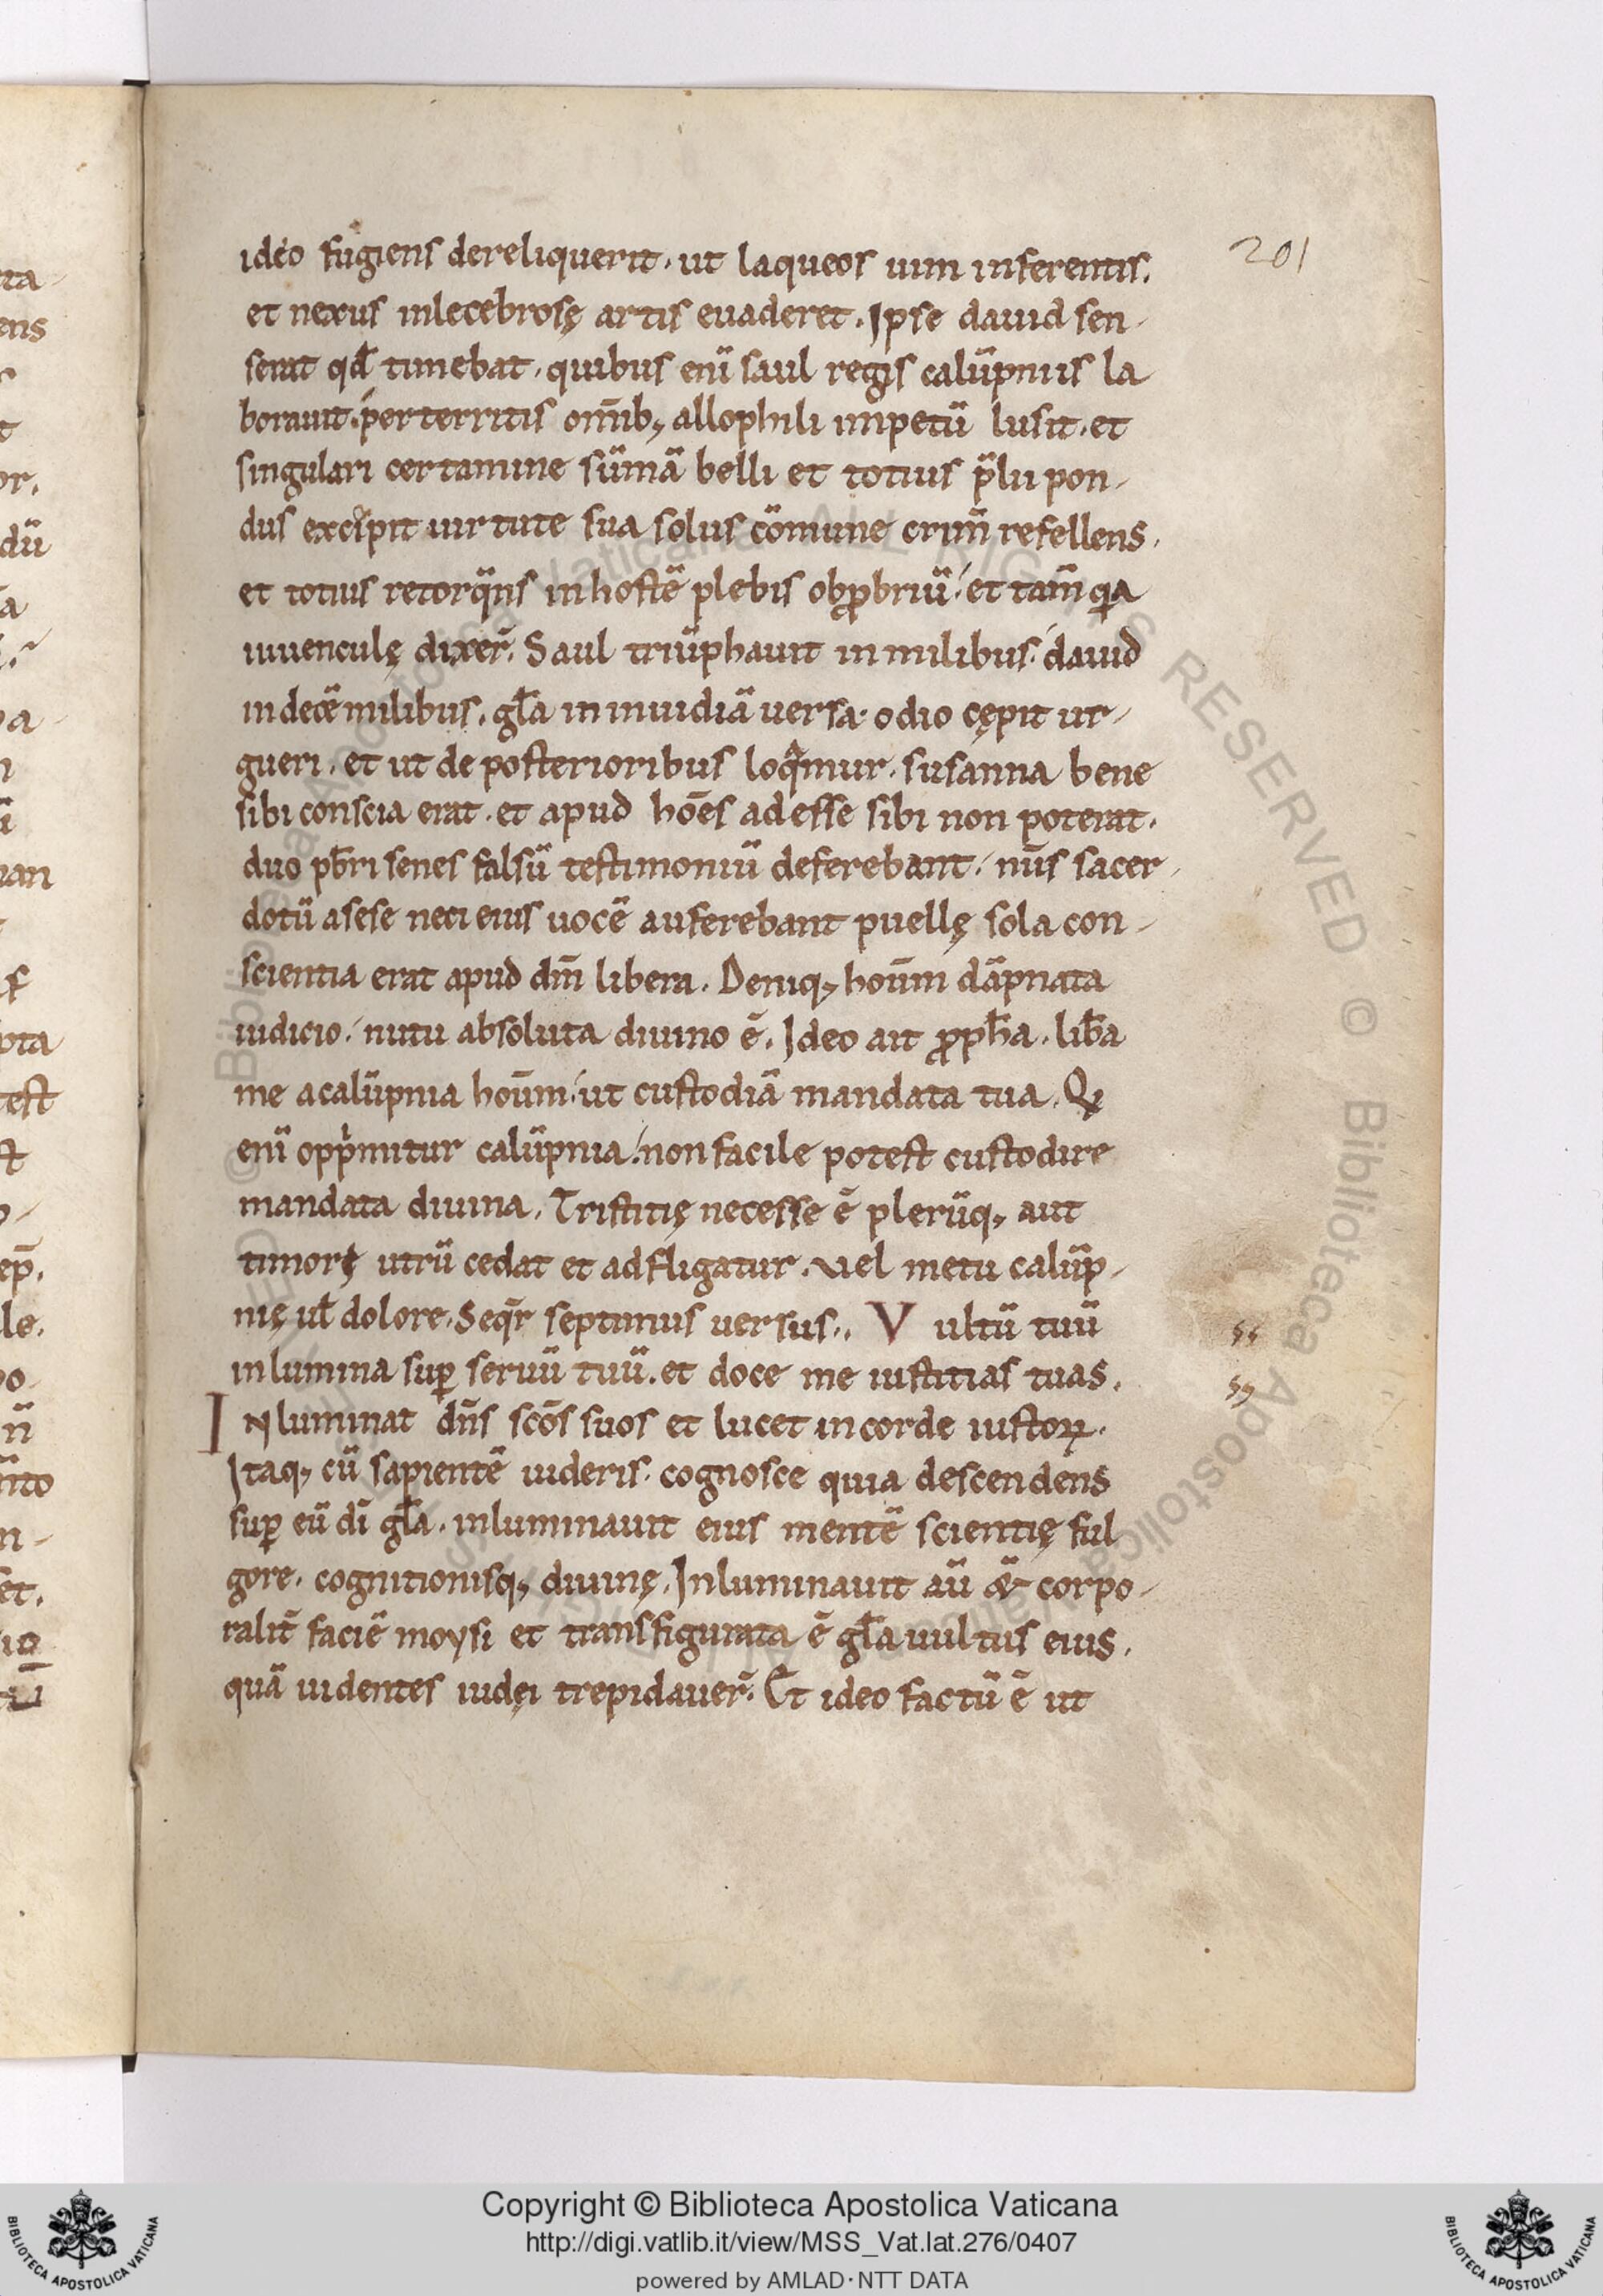 201
ideo fugiens dereliquerit. ut laqueos uim inferentis.
et nexus inlecebrosę artis euaderet. Ipse dauid sen-
serat qđ timebat. quibus enī saul regis calūpniis la
borauit. perterritis omīb; allophili impetū lusit. et
singulari certamine sūmā belli et totius p̄lii pon-
dus excipit uirtute sua solus cōmune crim̄ refellens.
et totius retorq̄ns in hostē plebis obꝓbriū. et tam̄ qa
iuuenculę dixer̄. Saul triūphauit in milibus. dauid
in decē milibus. gl̄a in inuidiā uersa. odio cępit ur-
gueri. et ut de posterioribus loqamur. susanna bene
sibi conscia erat. et apud hōes adesse sibi non poterat.
duo pb̄ri senes falsū testimoniū deferebant. nūs sacer-
dotū asese neci eius uocē auferebant puellę sola con-
scientia erat apud dm̄ libera. Deniq; hoūm dāpnata
iudicio. nutu absoluta diuino ē. Ideo ait ꝓph̄a. lib̄a
me a calūpnia hoūm. ut custodiā mandata tua. Qi
enī opp̄mitur calūpnia. non facile potest custodire
mandata diuina. Tristitię necesse ē plerūq; aut
timorę utrū cedat et adfligatur. uel metu calūp-
nię ul̄ dolore. Seqr̄ septimus uersus.. Vultū tuū
inlumina suꝑ seruū tuū. et doce me iustitias tuas.
INluminat dn̄s scōs suos et lucet in corde iustoꝝ.
Itaq; cū sapientē uideris. cognosce quia descendens
suꝑ eū dī gl̄a. inluminauit eius mentē scientię ful
gore. cognitionisq; diuinę. Inluminauit aū & corpo-
ralit̄ faciē moysi et transfigurata ē gl̄a uultus eius.
quā uidentes iudęi trepidauer̄. Et ideo factū ē ut
Copyright © Biblioteca Apostolica Vaticana
http://digi.vatlib.it/view/MSS_Vat.lat.276/0407
powered by AMLAD·NTT DATA
BIBLIOTECA APOSTOLICA VATICANA
BIBLIOTECA APOSTOLICA VATICANA